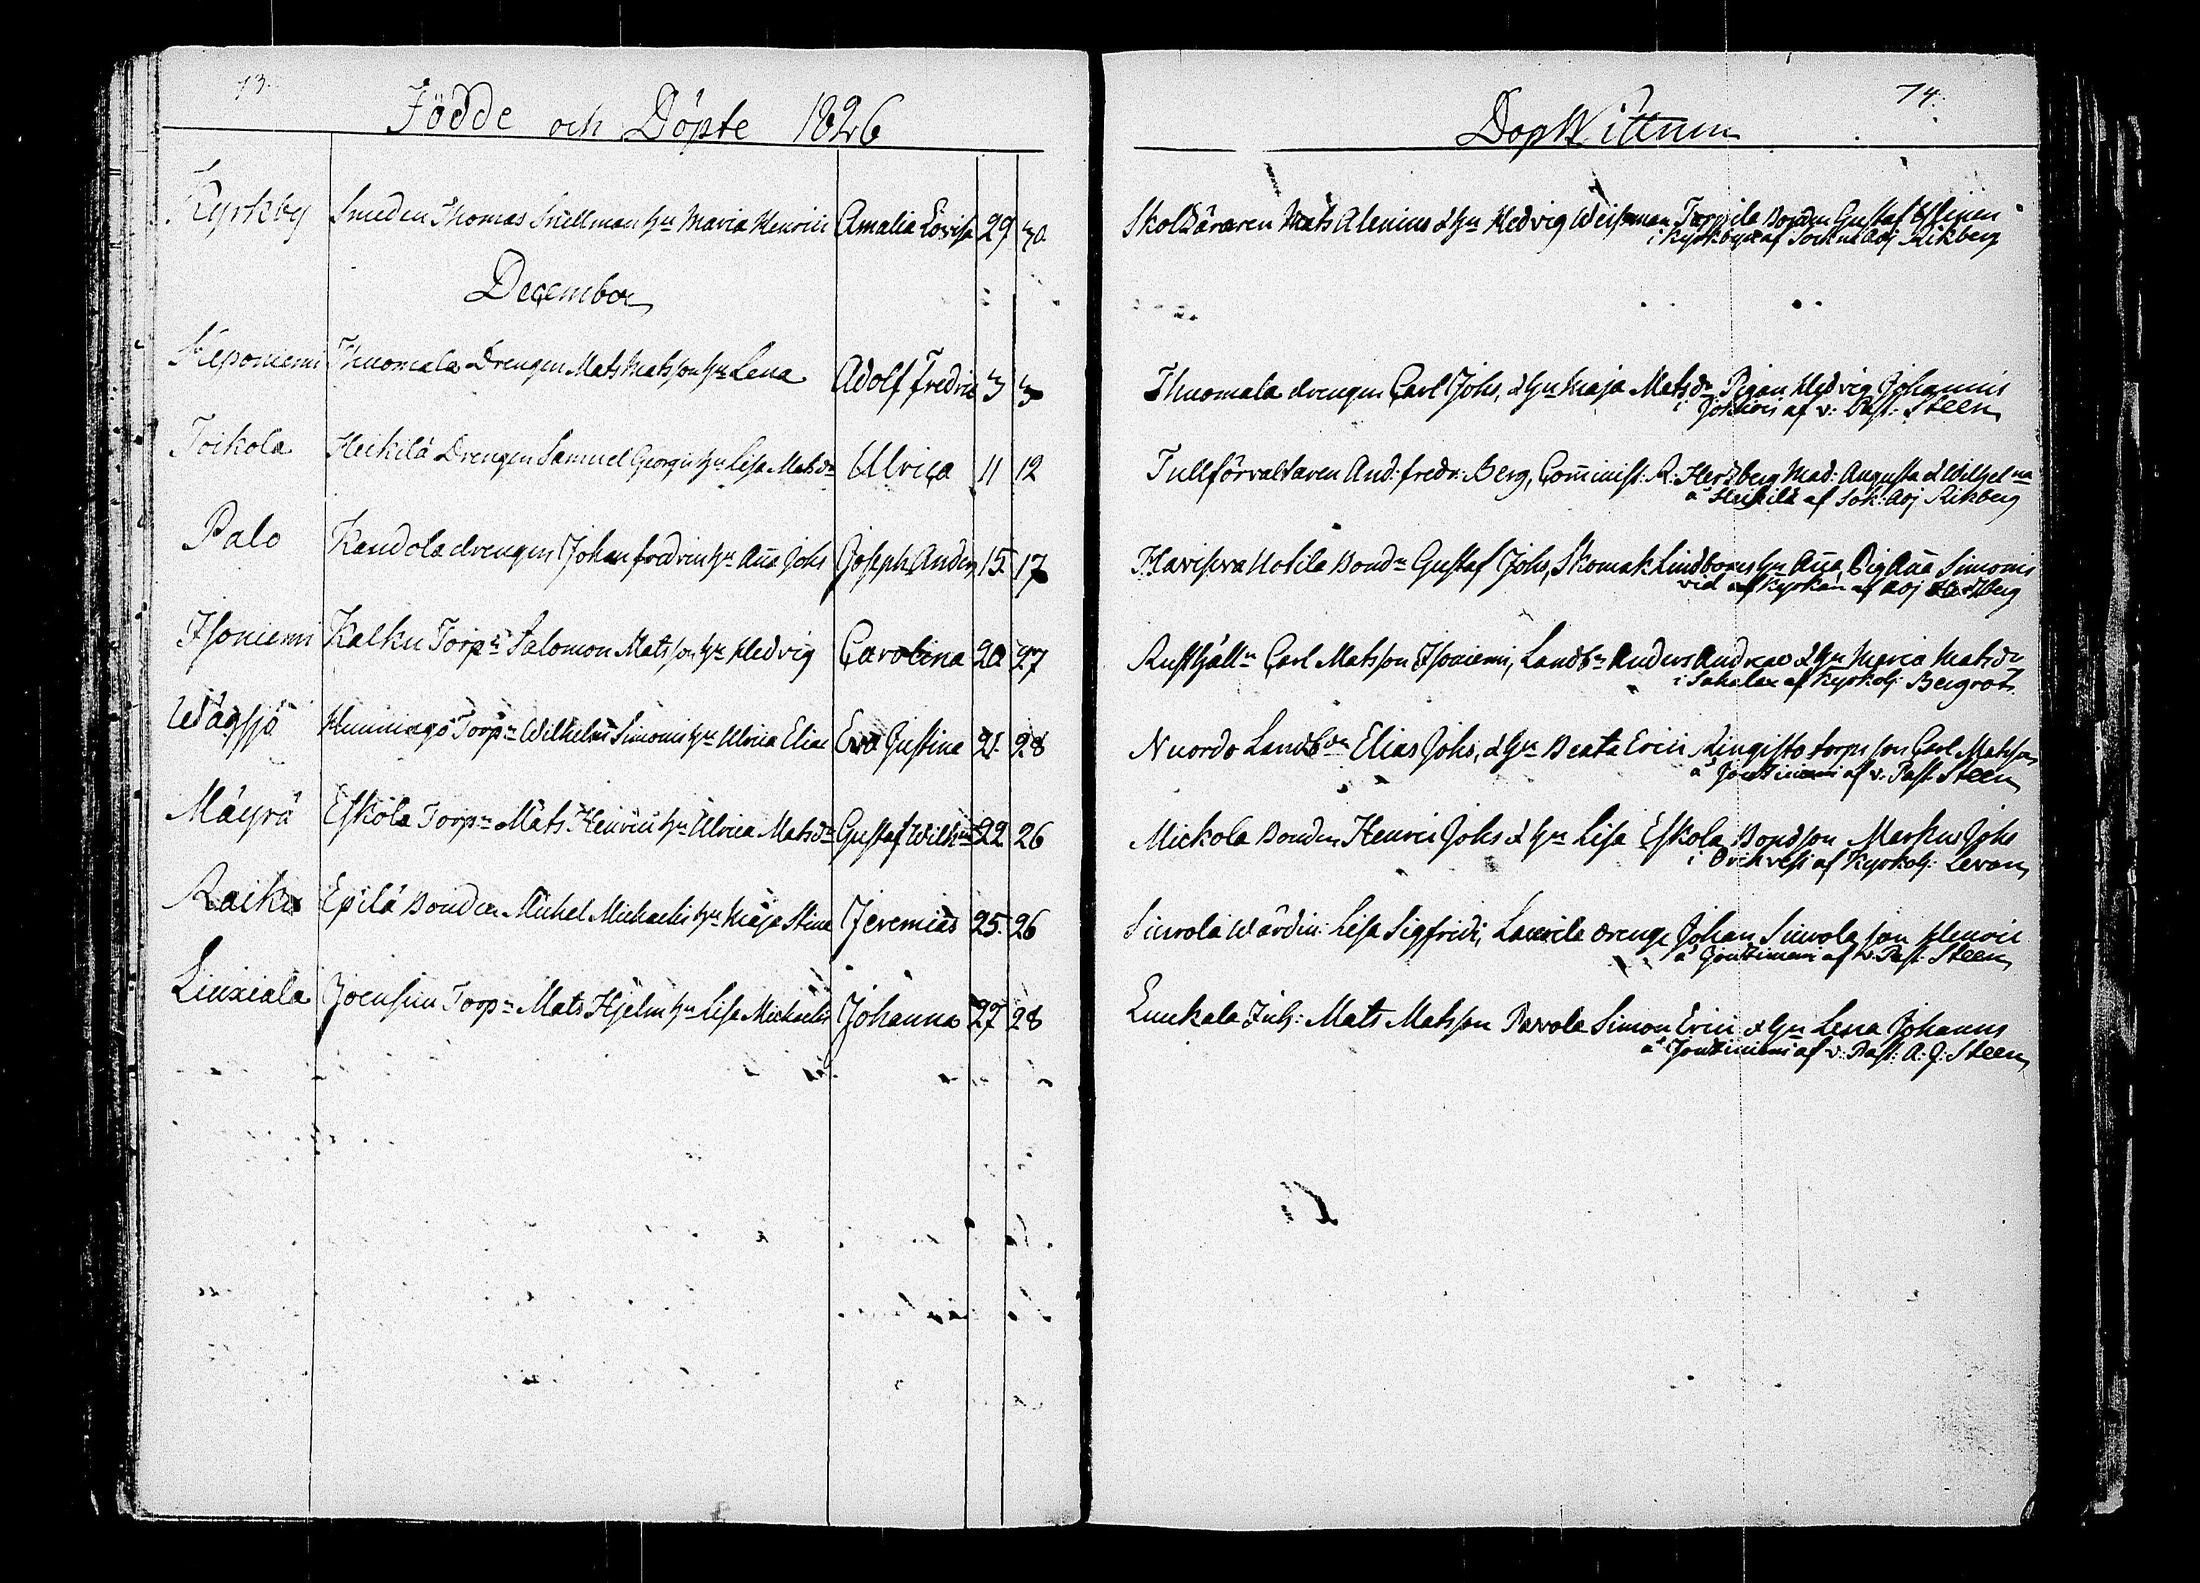 73.
Födde och Döpte 1826
Kyrkby Smeden Thomas Snellman hu Maria Henrici Amalia Lovisa 29 30
December
Thuomala Drengen Mats Matsson hu Lena Adolf Fredric 3 3
Toikola Heikilä Drengen Samuel Georgii hu Lisa Matsdr Ulrica 11 12
Palo Kandola drengen Johan Fredric hu Aña Johs Joseph Anders 15 17
Isoniemi Kalku Torpn Salomon Matsson hu Hedvig Carolina 20 27
Wågsjö Torpn Wilhelm Simonis hu Ulrica Eliæ Eva Justina 21 28
Mäyrä Eskola Torpn Mats Henrici hu Ulrica Matsdr Gustaf Wilhm 22 26
Raiku Epilä Bonden Michel Michaelis hu Maja Stina Jeremias 25 26
Linxiala Joensuu Torpn Mats Hjelm hu Lisa Michaelis Johanna 27 28
74.
DopWittnen
Skolläraren Mats Alenius & hu Hedvig Weisman Torpila Bonden Gustaf
i Kyrkbyn af Sockne Adj Rikberg
Thuomala drengen Carl Johs, & hu Maja Matsdr Pigan Hedvig Johannis
af v: Past: Steen
Tullförvaltaren And: Fredr: Berg, Com̃inist: R: Herzberg Mad: Augusta & Wilhelmna
å Heikilä af Sok: Adj Rikberg
Bondn Gustaf Johs, Skomak Lindbom hu Aña, Pig Aña Simonis
vid Kyrkan af Adj Hertzberg
Rusthålln Carl Matsson Isoniemi, Landbn Anders Andreæ & hu Maria Matsdr
i Sahalax af Kyrkohj Bergroth
Nuordo Landbdn Elias Johs, & hu Beata Erici Ringisto torpn son Carl Matsson
af v: Past Steen
Mickola Bonden Henric Johs & hu Lisa Eskola Bondson Markus Johs
i af Kyrkohj: Levan
Simola Wärdin: Lisa Sigfridi, Laurila dreng Johan Simola son Henric
af v: Past: Steen
Linkala Inh: Mats Matsson Pavola Simon Erici & hu Lena Johannis
af v: Past: A: J: Steen